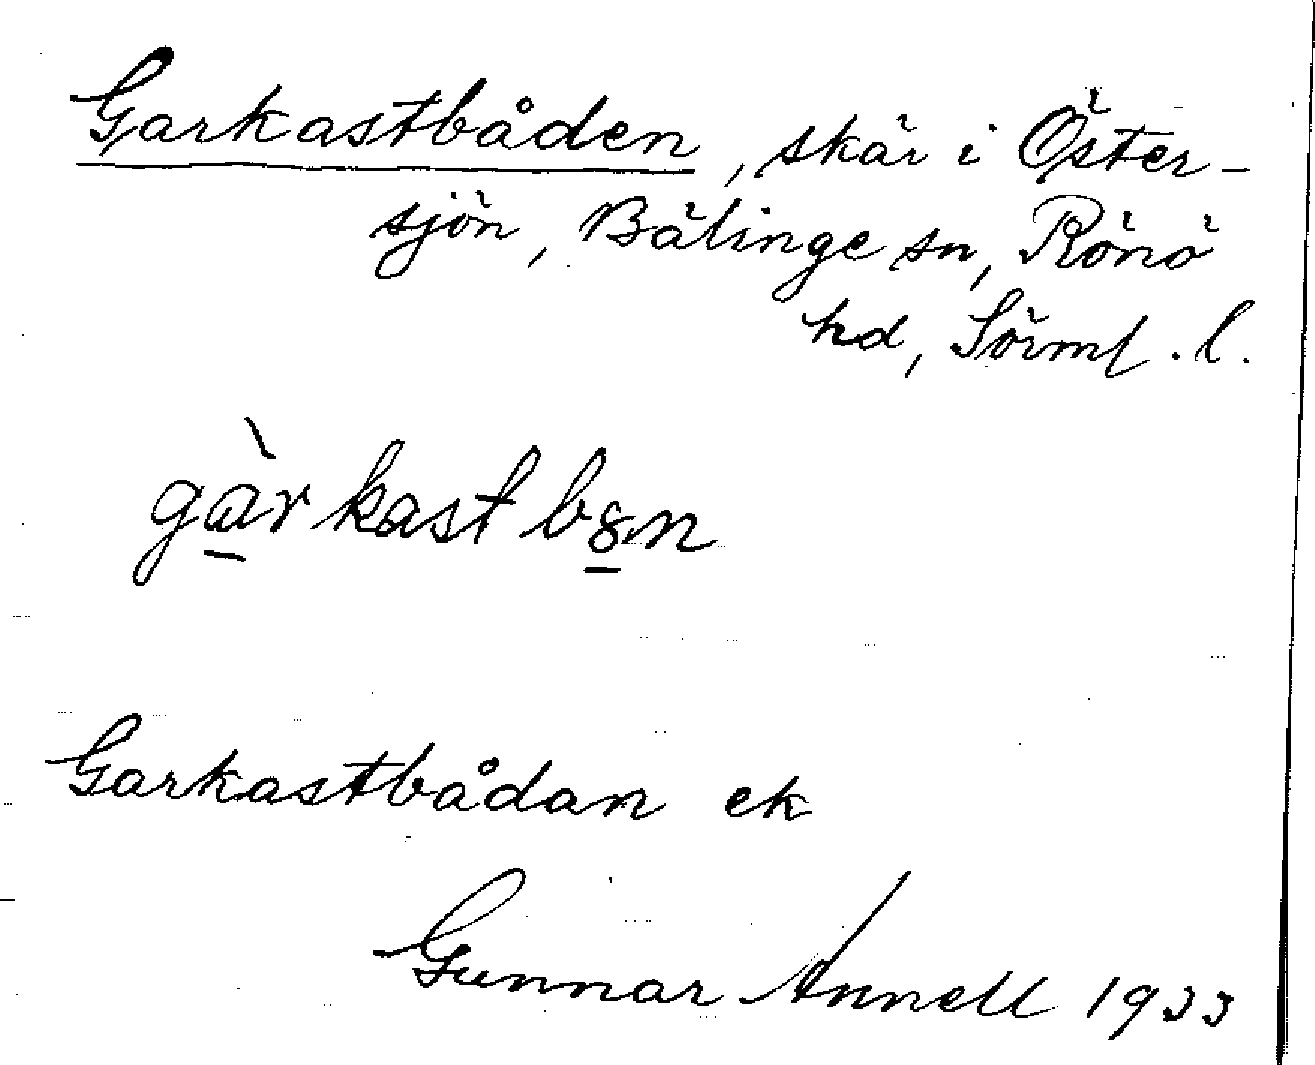 Garkastbåden, skär i Öster-
sjön, Bälinge sn, Rönö
hd, Sörml. l.
gàrkastbȣn
Garkastbådan ek
Gunnar Annell 1933